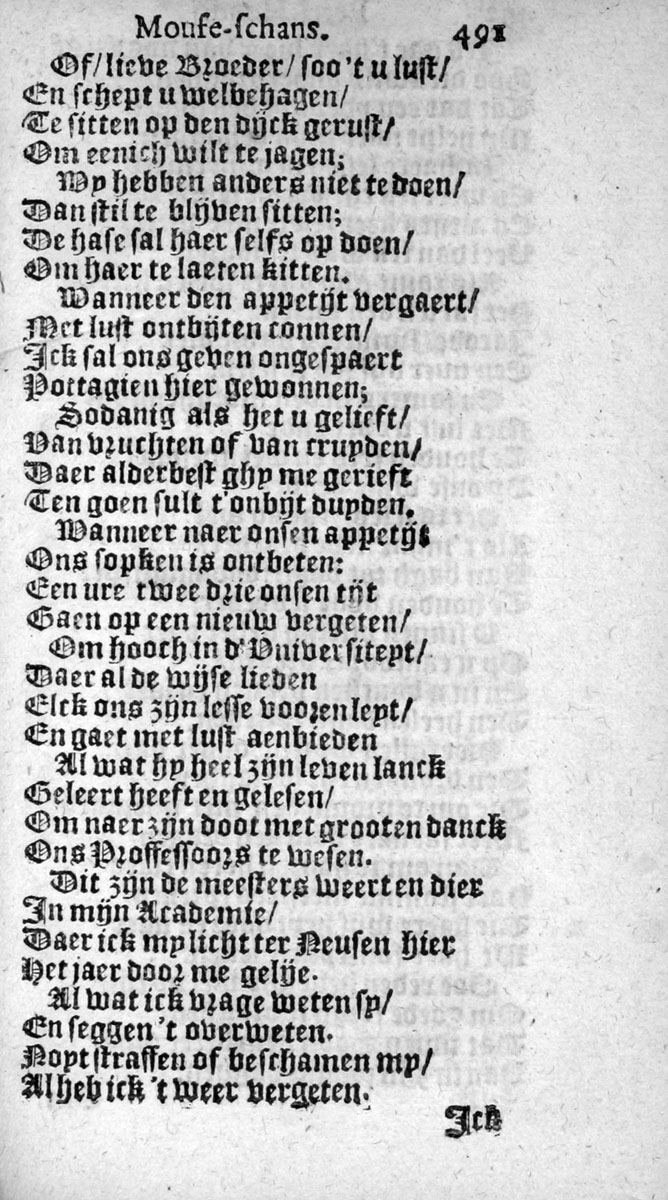 Moufe-schans. 491
Of/ lieve Broeder/ soo 't u lust/
En schept u welbehagen/
Te sitten op den dijck gerust/
Om eenich wilt te jagen;
Wy hebben anders niet te doen/
Dan stil te blijven sitten;
De hase sal haer selfs op doen/
Om haer te laeten kitten.
Wanneer den appetijt vergaert/
Met lust ontbijten connen/
Ick sal ons geven ongespaert
Pottagien hier gewonnen;
Sodanig als het u gelieft/
Van vruchten of van cruyden/
Daer alderbest ghy me gerieft
Ten goen sult t'onbijt duyden.
Wanneer naer onsen appetijt
Ons sopken is ontbeten:
Een ure twee drie onsen tijt
Gaen op een nieuw vergeten/
Om hooch in d'Universiteyt/
Daer al de wijse lieden
Elck ons zijn lesse vooren leyt/
En gaet met lust aenbieden
Al wat hy heel zijn leven lanck
Geleert heeft en gelesen/
Om naer zijn doot met grooten danck
Ons Proffessoors te wesen.
Dit zijn de meesters weert en dier
In mijn Academie/
Daer ick my licht ter Neusen hier
Het jaer door me gelije.
Al wat ick vrage weten sy/
En seggen 't overweten.
Noyt straffen of beschamen my/
Al heb ick 't weer vergeten.
Ick